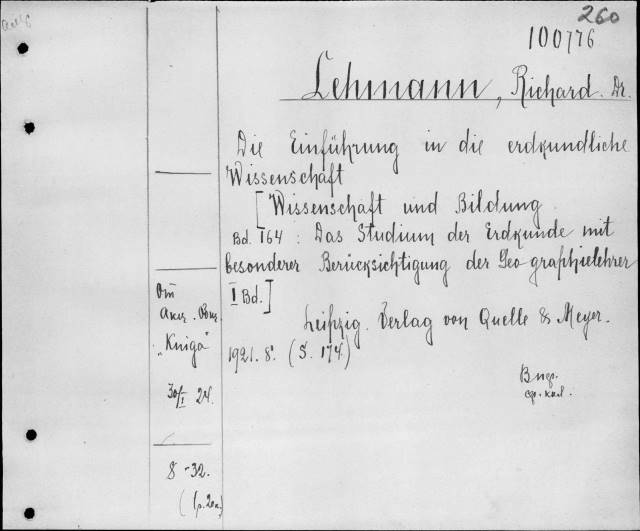 260
100776
Lehmann, Richard. Dr.
Die Einführung in die erdkundliche
Wissenschaft
[Wissenschaft und Bildung.
Bd. 164: Das Studium der Erdkunde mit
besonderer Berücksichtigung der Geographielehrer
I Bd.]
Leipzig. Verlag von Quelle & Meyer.
1921. 8°. (S. 174.)
От
Акц. Общ.
„Kniga"
30/I 24.
8-32.